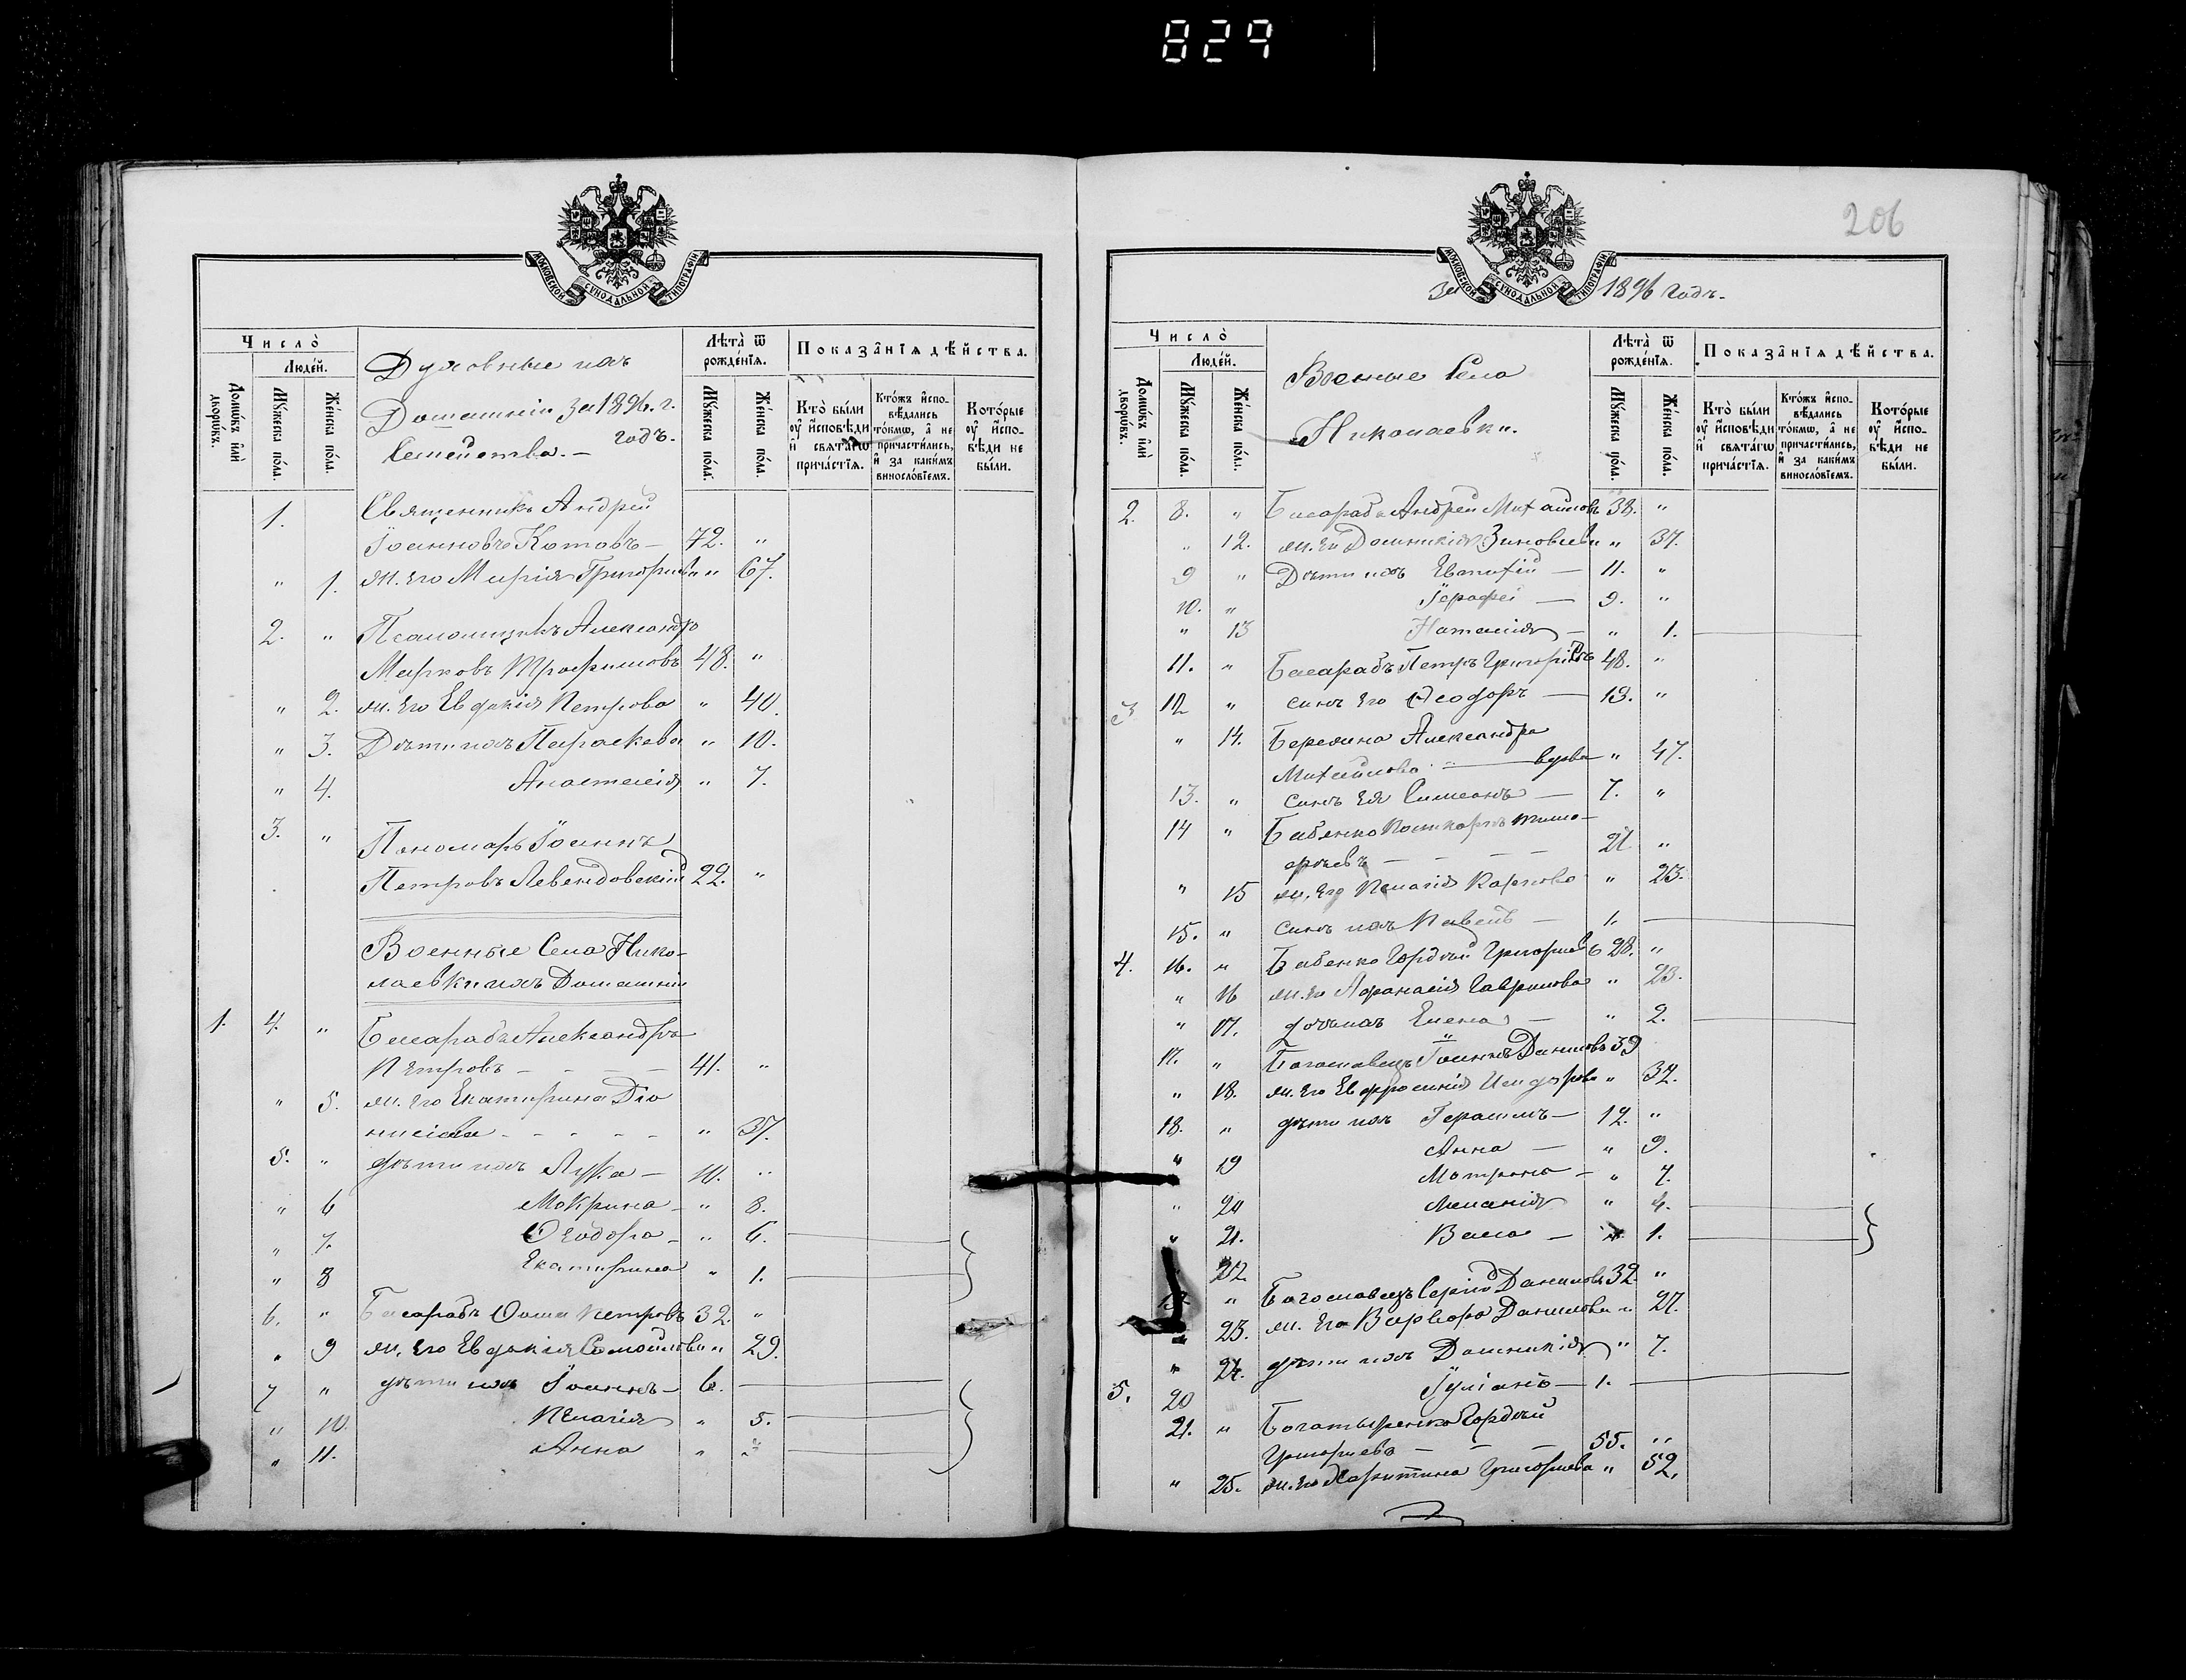 829
МОСКОВСКОЙ СѴНОДАЛЬНОЙ ТИПОГРАФІИ
Число̀
Люде́й.
Домѡ́въ и҆лѝ дворѡ́въ.
Мꙋ́жеска по́ла.
Же́нска по́ла.
Духовные ихъ
Домашніи за 1896. г.
годъ.
Семейства. —
Лѣ́та ѿ рожде́нїѧ.
Мꙋ́жеска по́ла.
Же́нска по́ла.
Показа̑нїѧ дѣ́йства.
Кто̀ бы́ли оу҆ и҆сповѣ́ди и҆ свѧта́гѡ прича́стїѧ.
Кто́жъ и҆спо-вѣ́дались то́кмѡ, а҆ не причасти́лись, и҆ за каки́мъ винослѡ́вїемъ.
Кото́рые оу҆ и҆спо-вѣ́ди не бы́ли.
1. Священникъ Андрей
Іоанновъ Котовъ — 72. "
" 1. ж. его Марія Григорьева " 67.
2. " Псаломщикъ Александръ
Марковъ Трофимовъ 48. "
" 2. ж. его Евдокія Петрова " 40.
" 3. Дѣти ихъ Параскева " 10.
" 4. Анастасія " 7.
3. " Пономарь Іоаннъ
Петровъ Левендовскій 22. "
Военные Села Нико-
лаевки ихъ Домашніи
1. 4. " Басарабъ Александръ
Петровъ - - - - 41. "
" 5. ж. его Екатерина Діо
нисіева - - - - " 37.
5. " дѣти ихъ Лука — 10. "
" 6 Макрина — " 8.
" 7. Ѳеодора — " 6.
" 8 Екатерина " 1.
6. " Басарабъ Ѳома Петровъ 32. "
" 9 ж. его Евдокія Самойлова " 29.
7 " дѣти ихъ Іоаннъ — 6.
" 10. Пелагія " 5.
" 11. Анна "
206
МОСКОВСКОЙ СѴНОДАЛЬНОЙ ТИПОГРАФІИ
За 1896 годъ.
Число̀
Люде́й.
Домѡ́въ и҆лѝ дворѡ́въ.
Мꙋ́жеска по́ла.
Же́нска по́ла.
Военные Села
Николаевки.
Лѣ́та ѿ рожде́нїѧ.
Мꙋ́жеска по́ла.
Же́нска по́ла.
Показа̑нїѧ дѣ́йства.
Кто̀ бы́ли оу҆ и҆сповѣ́ди и҆ свѧта́гѡ прича́стїѧ.
Кто́жъ и҆спо-вѣ́дались то́кмѡ, а҆ не причасти́лись, и҆ за каки́мъ винослѡ́вїемъ.
Кото́рые оу҆ и҆спо-вѣ́ди не бы́ли.
2. 8. " Басарабъ Андрей Михайловъ 38. "
" 12. ж. его Домникія Зиновьева " 37.
9 " Дѣти ихъ Евтихій — 11. "
10. " — 9. "
" 13 Наталія — " 1.
11. " Басарабъ Петръ Григорьевъ 48. "
3 12 " сынъ его Ѳеодоръ — 13. "
" 14. Березина Александра
Михайлова — вдова " 47.
13. " сынъ ея Симеонъ — 7. "
14 " Бабенко Поликарпъ Тимо-
фѣевъ - - - - 21 "
" 15 ж. его Пелагія Карпова " 23.
15. " сынъ ихъ Павелъ — 1.
4. 16. " Бабенко Гордѣй Григорьевъ 28. "
" 16 ж. его Афанасія Гаврилова " 23.
" 17. дочь ихъ Елена — " 2.
17. " Богославецъ Іоаннъ Даниловъ 39
" 18. ж. его Евфросинія Исидорова " 32.
18. " дѣти ихъ Герасимъ — 12. "
" 19 Анна — " 9.
Матрона — " 7.
" 20 Меланія " 4.
" 21. Васса — " 1.
22
19. " Богославецъ Сергій Даниловъ 32. "
" 23. ж. его Варвара Данилова " 27.
" 24. дѣти ихъ Домникія " 7.
5. 20 Іуліанъ — 1.
21. " Богатыренко Гордѣй
Григорьевъ — — — 55. "
" 25. ж. его Харитина Григорьева " 52.